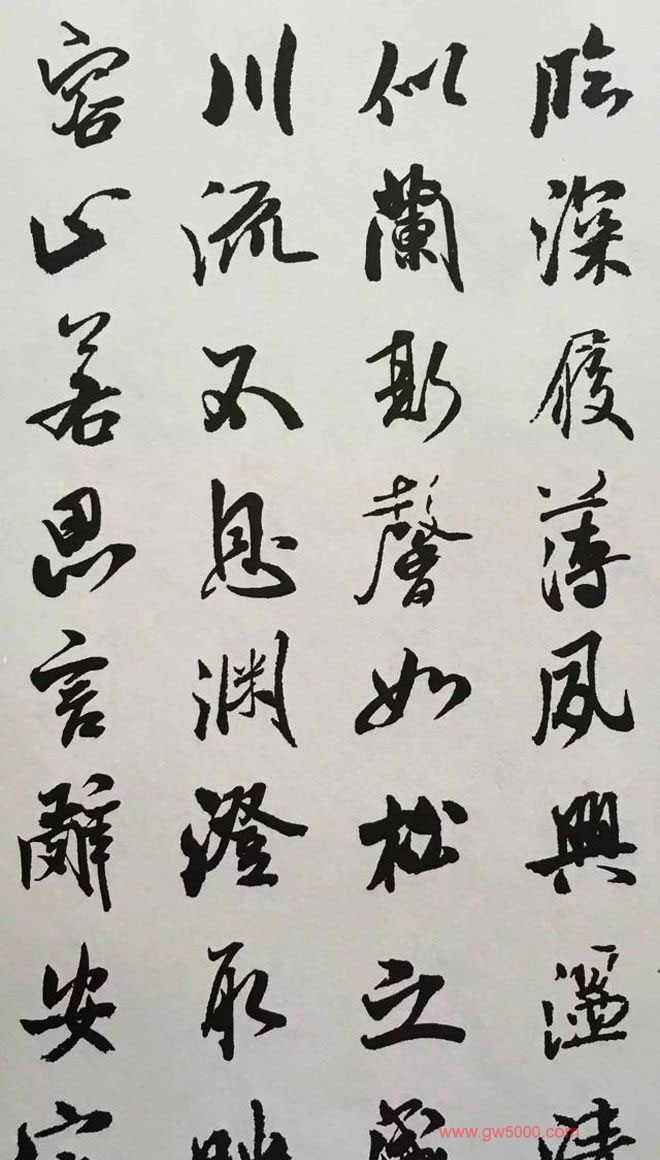 臨深履薄夙興溫清
似蘭斯馨如松之盛
川流不息淵澄取映
容止若思言辭安定
www.gw5000.com